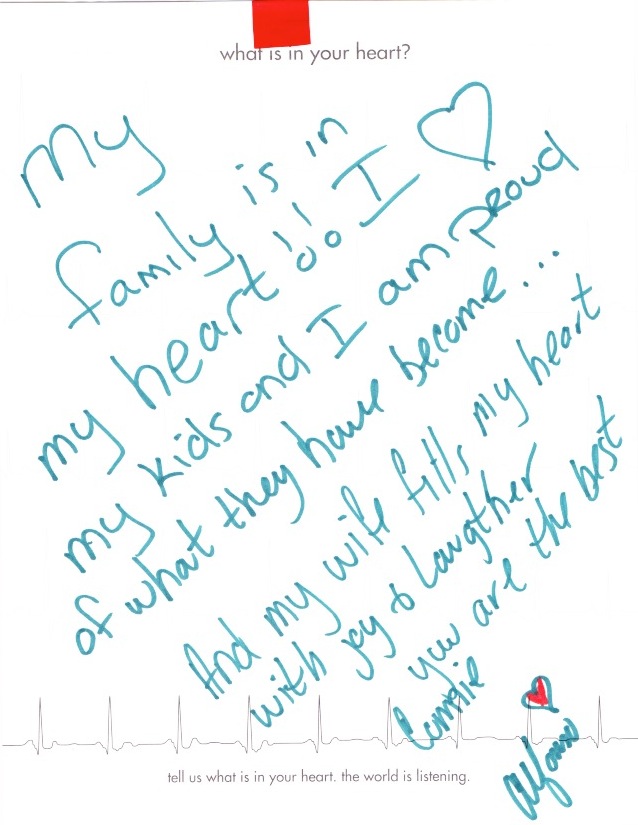 what is in your heart?
My
family is in
my heart!! I ♡
my kids and I am proud
of what they have become...
And my wife fills my heart
with joy & laugther
you are the best
tell us what is in your heart. the world is listening.